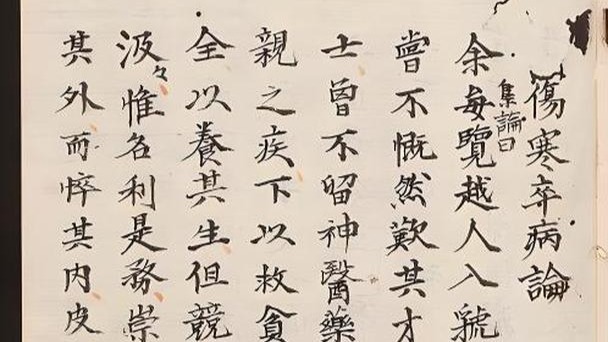 傷寒卒病論
集論曰
余每覽越人入虢
嘗不慨然歎其才
士曾不留神醫藥
親之疾下以救貧
全以養其生但競
汲々惟名利是務崇
其外而悴其内皮